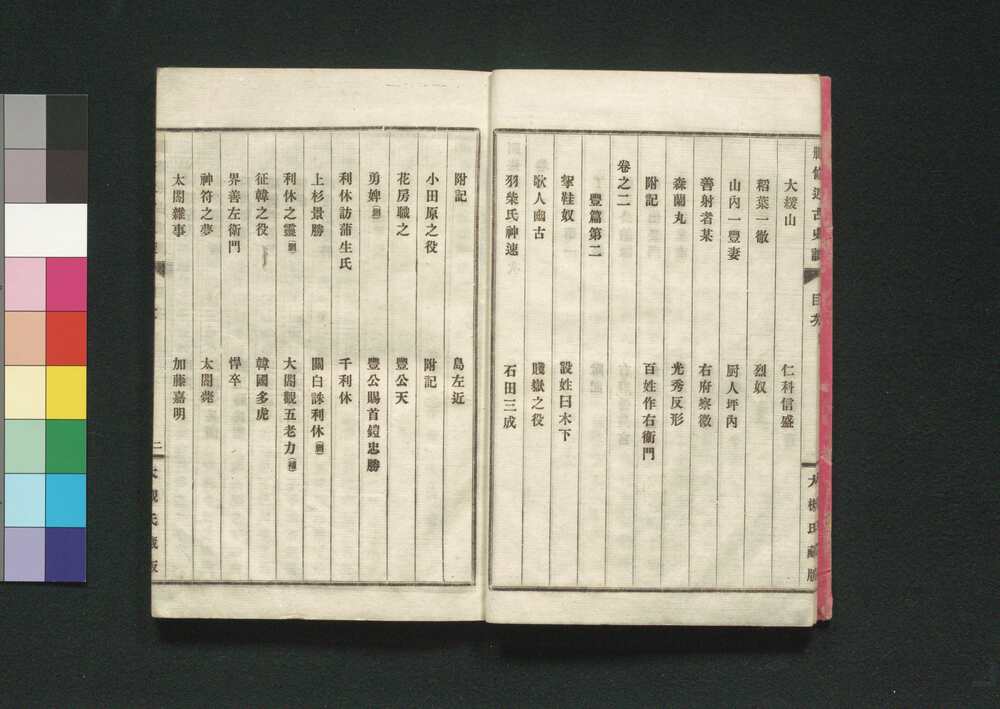 刪修近古史談
目次
大槻氏藏版
大綫山
仁科信盛
稻葉一徹
烈奴
山內一豐妻
厨人坪內
善射者某
右府察微
森蘭丸
光秀反形
附記
百姓作右衞門
卷之二
豐篇第二
挐鞋奴
設姓曰木下
歌人幽古
賤嶽之役
羽柴氏神速
石田三成
附記
島左近
小田原之役
附記
花房職之
豐公天
勇婢(刪)
豐公賜首鎧忠勝
利休訪蒲生氏
千利休
上杉景勝
關白誅利休(刪)
利休之靈(刪)
大閤觀五老力(補)
征韓之役
韓國多虎
界善左衞門
悍卒
神符之夢
太閤薨
太閤雜事
加藤嘉明
二
大槻氏藏版